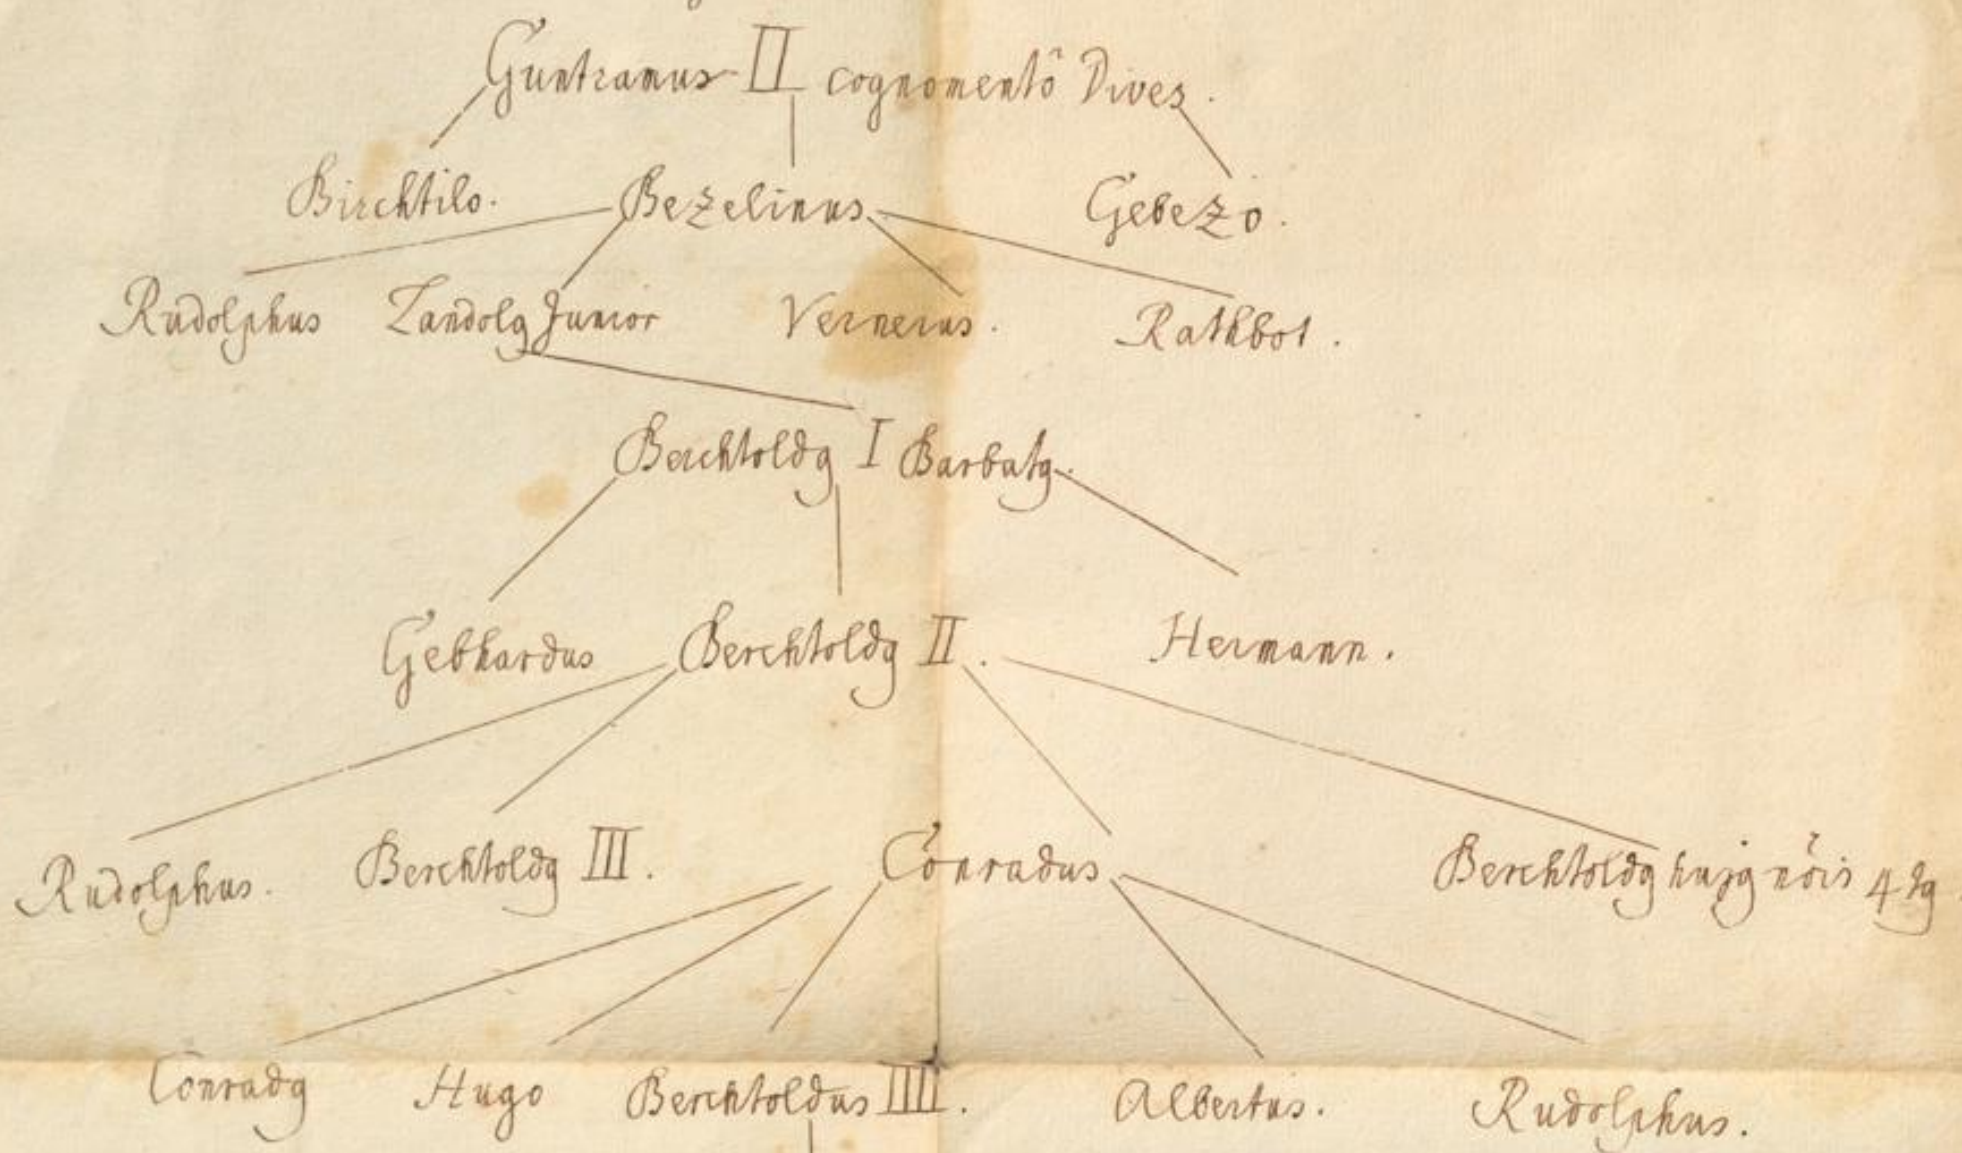 Guntramus II cognomentô Dives.
Birchtilo. Bezelinus. Gebezo.
Rudolphus Landolꝰ Junior Vernerus. Rathbot.
Berchtoldꝰ I Barbatꝰ.
Gebhardus Berchtoldꝰ II. Hermann.
Rudolphus. Berchtoldꝰ III. Conradus Berchtoldꝰ hujꝰ nõis 4tꝰ
Conradꝰ Hugo Berchtoldus IIII. Albertus. Rudolphus.